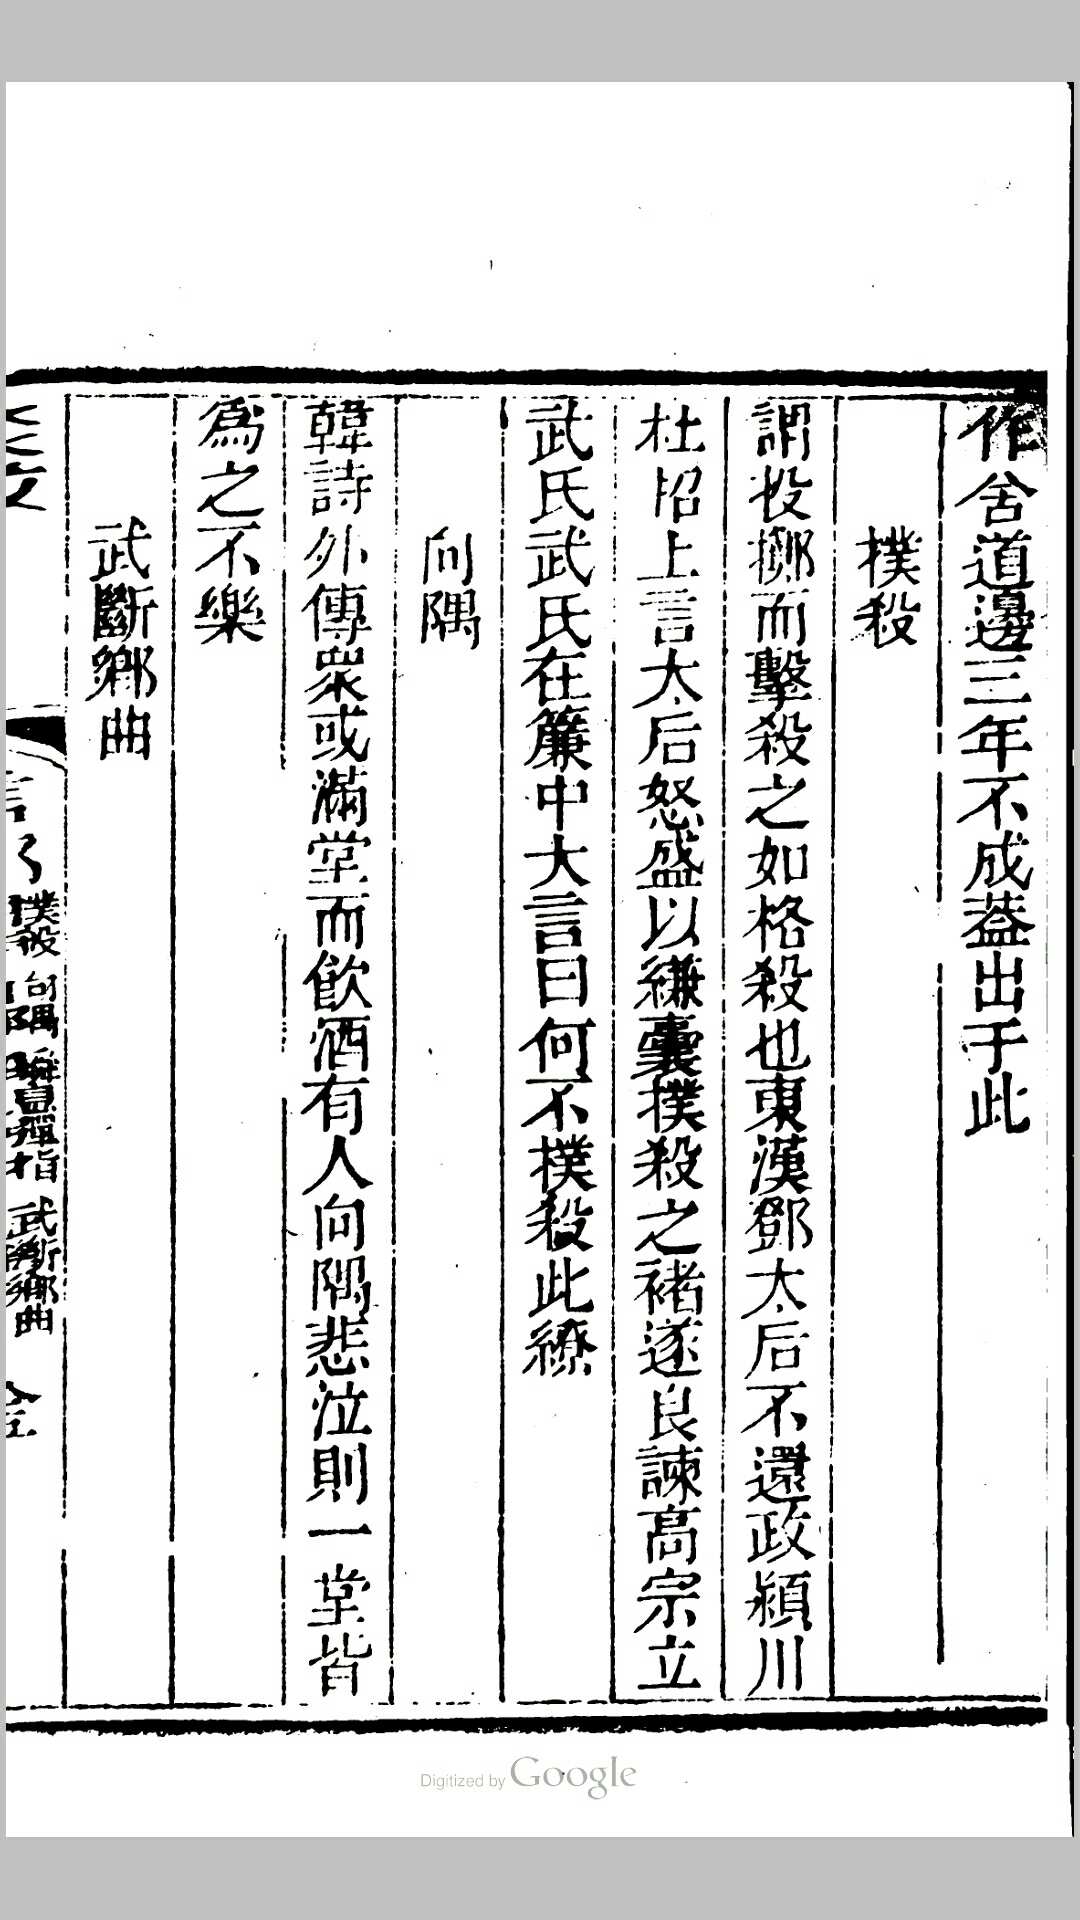 作舍道邊三年不成葢出于此
撲殺
謂投擲而擊殺之如格殺也東漢鄧太后不還政潁川
杜招上言太后怒盛以縑囊撲殺之褚遂良諫高宗立
武氏武氏在簾中大言曰何不撲殺此獠
向隅
韓詩外傳衆或滿堂而飲酒有人向隅悲泣則一堂皆
爲之不樂
武斷鄉曲
撲殺 向隅 彈指 武斷鄉曲
Digitized by Google